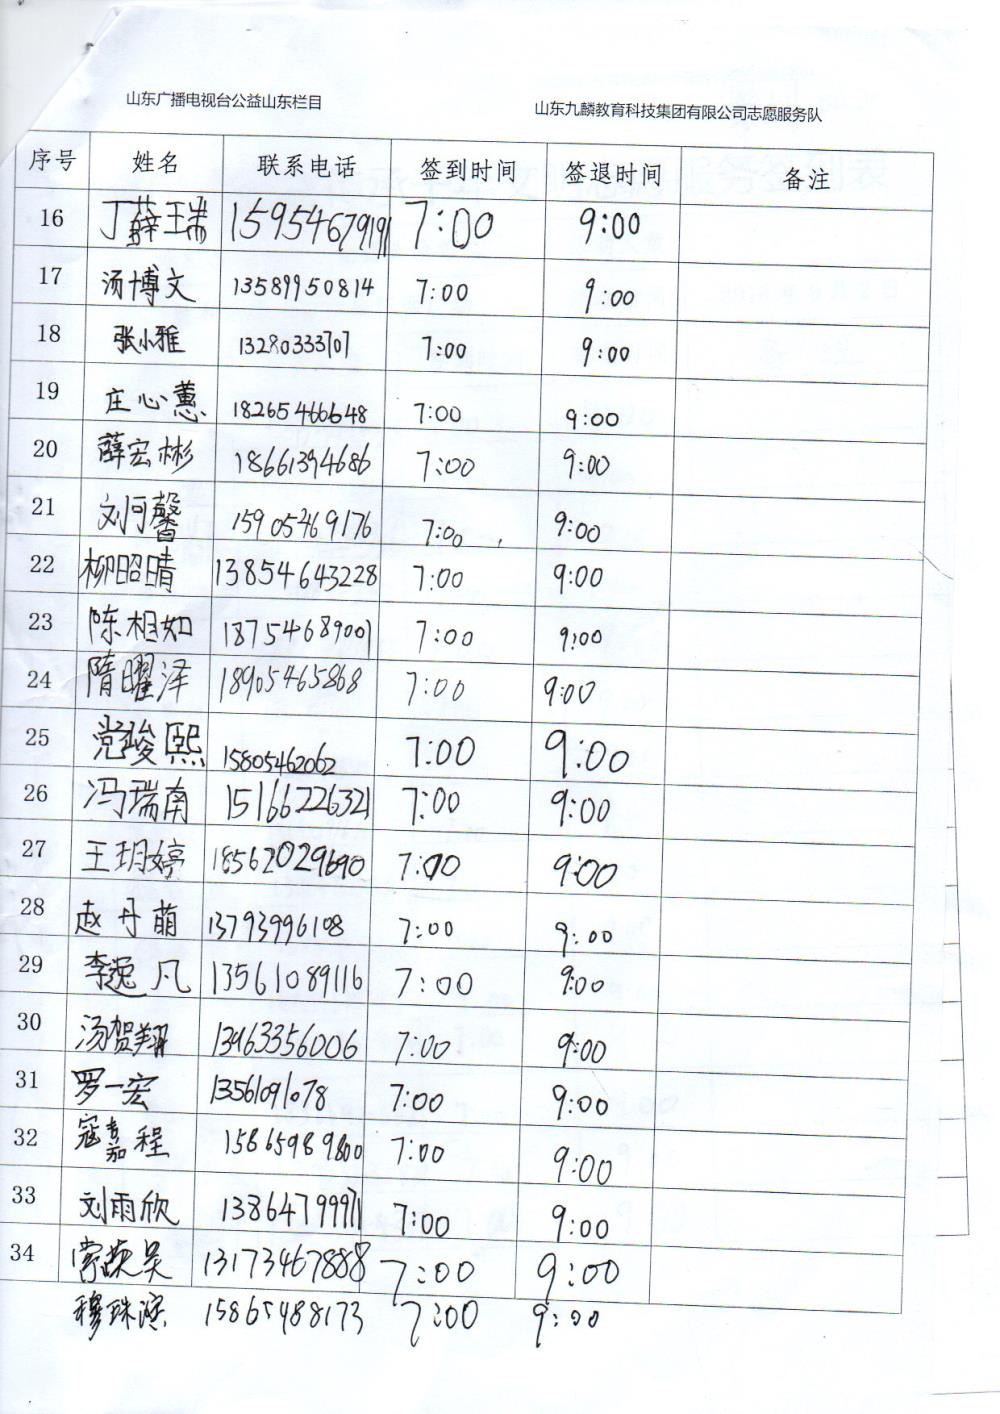 山东广播电视台公益山东栏目
山东九麟教育科技集团有限公司志愿服务队
序号 姓名 联系电话 签到时间 签退时间 备注
16 丁薛瑞 15954679191 7:00 9:00
17 汤博文 13589950814 7:00 9:00
18 张小雅 13280333707 7:00 9:00
19 庄心蕙 18265466648 7:00 9:00
20 薛宏彬 18661394686 7:00 9:00
21 刘何馨 15905469176 7:00 9:00
22 柳昭晴 13854643228 7:00 9:00
23 陈相如 18754689001 7:00 9:00
24 隋曜泽 18905465868 7:00 9:00
25 党峻熙 15805462062 7:00 9:00
26 冯瑞南 15166226321 7:00 9:00
27 王玥婷 18562029690 7:00 9:00
28 赵丹萌 13793996108 7:00 9:00
29 李逸凡 13561089116 7:00 9:00
30 汤贺翔 13963356006 7:00 9:00
31 罗一宏 13561091078 7:00 9:00
32 寇嘉程 15865989800 7:00 9:00
33 刘雨欣 13864799971 7:00 9:00
34 13173467888 7:00 9:00
穆珠滢 15865488173 7:00 9:00